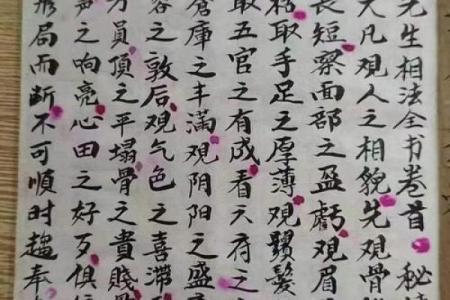 先生相法全书卷首 秘
大凡觀人之相貌先觀骨
長短察面部之盈虧觀眉
枯取手足之厚薄觀鬚髮
取五官之有成看六府之
倉庫之丰满觀阴阳之盛
容之敦后观气色之喜滞
方員頂之平塌骨之貴賤
声之响亮心田之好歹俱
形局而断不可順时趨奉